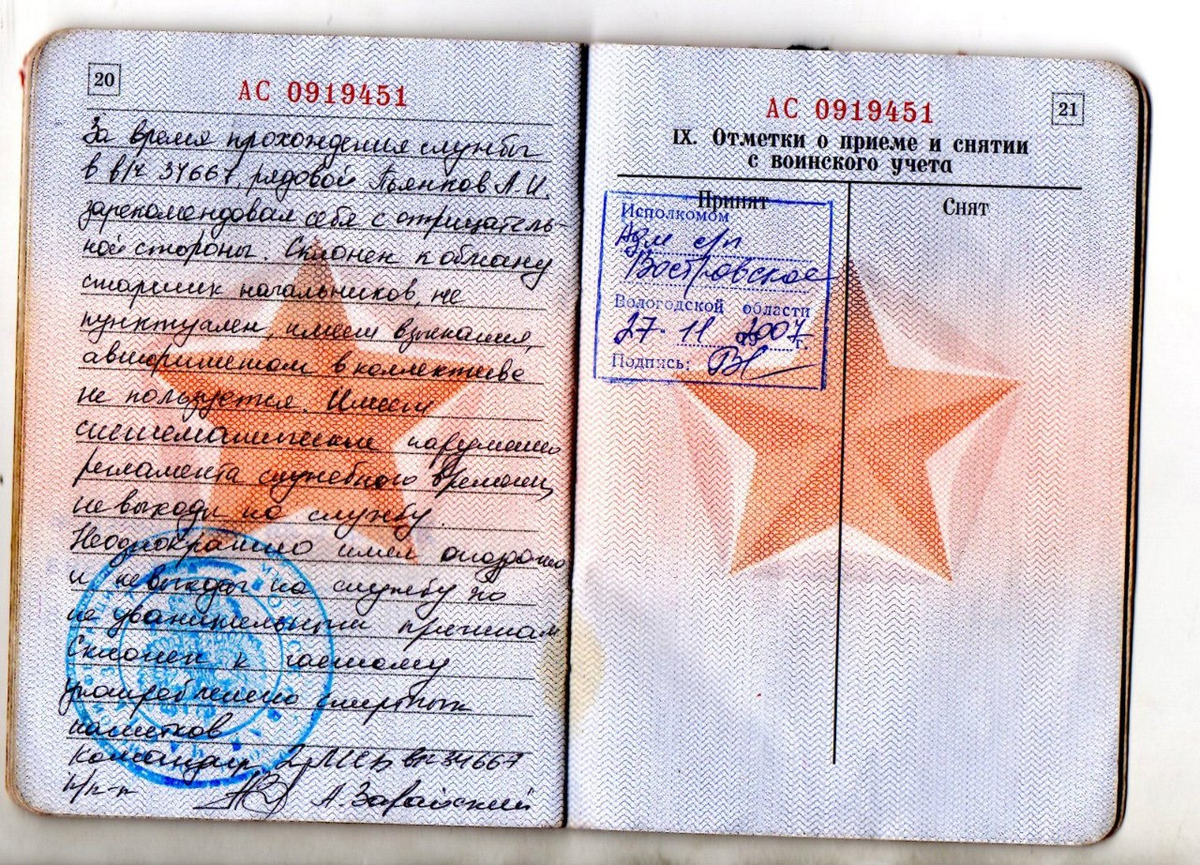 20
АС 0919451
За время прохождения службы
в в/ч 34667, рядовой Пьянков А.И.
зарекомендовал себя с отрицатель-
ной стороны. Склонен к обману
старших начальников, не
пунктуален, имеет взыскания,
авторитетом в коллективе
не пользуется. Имеет
систематические нарушения
регламента служебного времени,
не выходы на службу.
Неоднократно имел опоздания
и невыходы на службу по
не уважительным причинам.
Склонен к частому
употреблению спиртных
напитков
Командир 2 МСБ в/ч 34667
п/п-к А. Зарайский
АС 0919451
21
IX. Отметки о приеме и снятии
с воинского учета
Принят
Снят
Исполкомом
Адм с/п
Востровское
Вологодской области
27 11 2007 г.
Подпись: